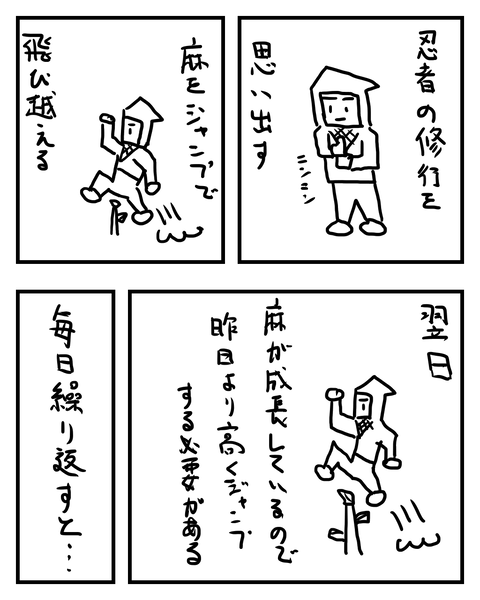 忍者の修行を
思い出す
ニンニン
麻をジャンプで
飛び越える
翌日
麻が成長しているので
昨日より高くジャンプ
する必要がある
毎日繰り返すと…